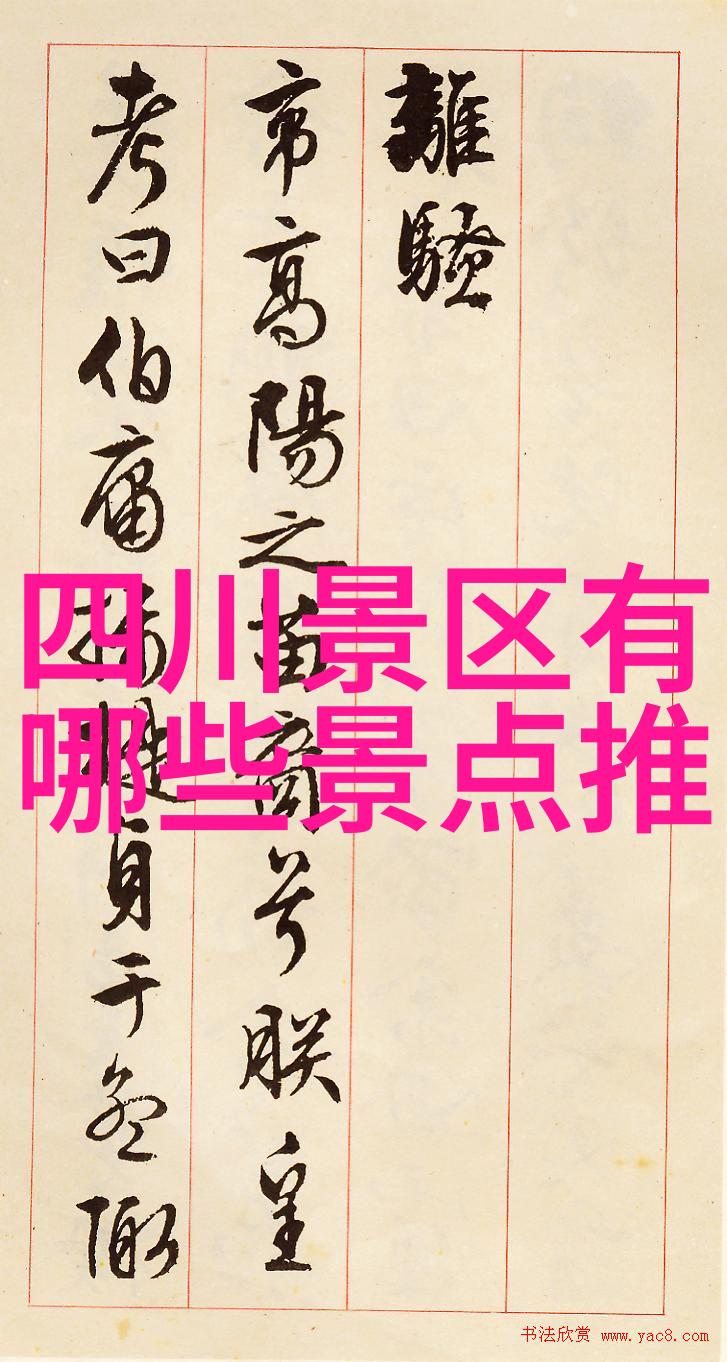 離騷
帝高陽之苗裔兮朕皇
考曰伯庸攝提貞于孟陬
四川景区有
哪些景点推
书法欣赏 www.yac8.com